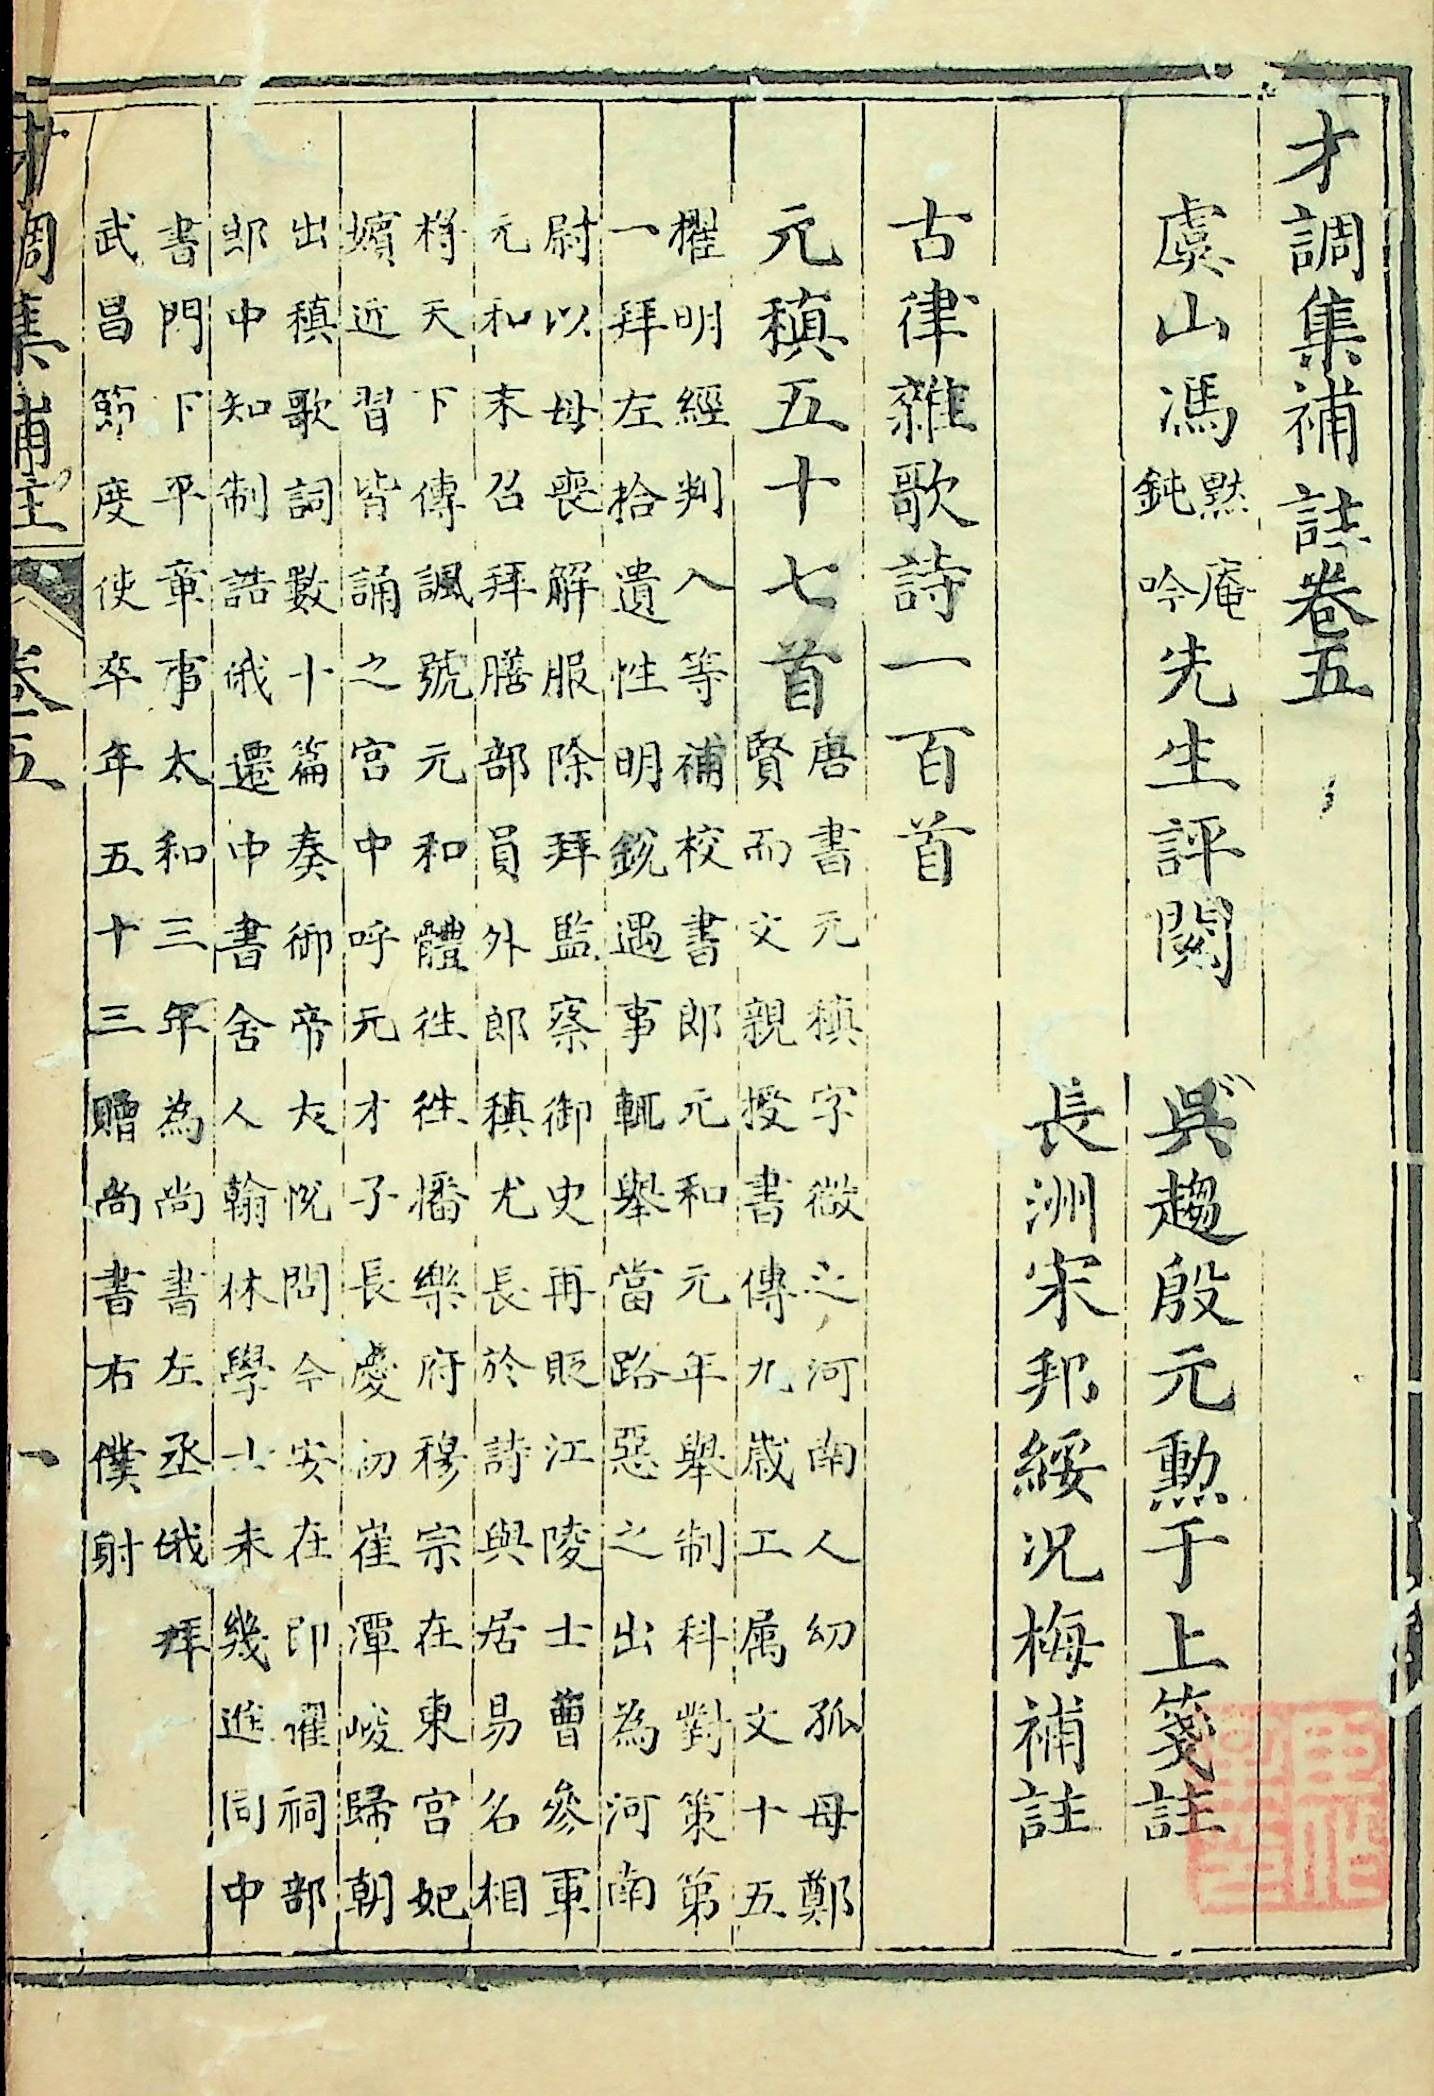 才調集補註卷五
虞山馮默庵鈍吟先生評閱　吳趨殷元勳于上箋註
長洲宋邦綏況梅補註
古律雜歌詩一百首
元稹五十七首
唐書元稹字微之河南人幼孤母鄭
賢而文親授書傳九歲工属文十五
擢明經判入等補校書郎元和元年舉制科對策第
一拜左拾遺性明銳遇事輒舉當路惡之出為河南
尉以母喪解服除拜監察御史再貶江陵士曹參軍
元和末召拜膳部員外郎稹尤長於詩與居易名相
埒天下傳諷號元和體往往播樂府穆宗在東宮妃
嬪近習皆誦之宮中呼元才子長慶初崔潭峻歸朝
出稹歌詞數十篇奏御帝大悅問今安在即擢祠部
郎中知制誥俄遷中書舍人翰林學士未幾進同中
書門下平章事太和三年為尚書左丞俄拜
武昌節度使卒年五十三贈尚書右僕射
才調集補註　卷五　一